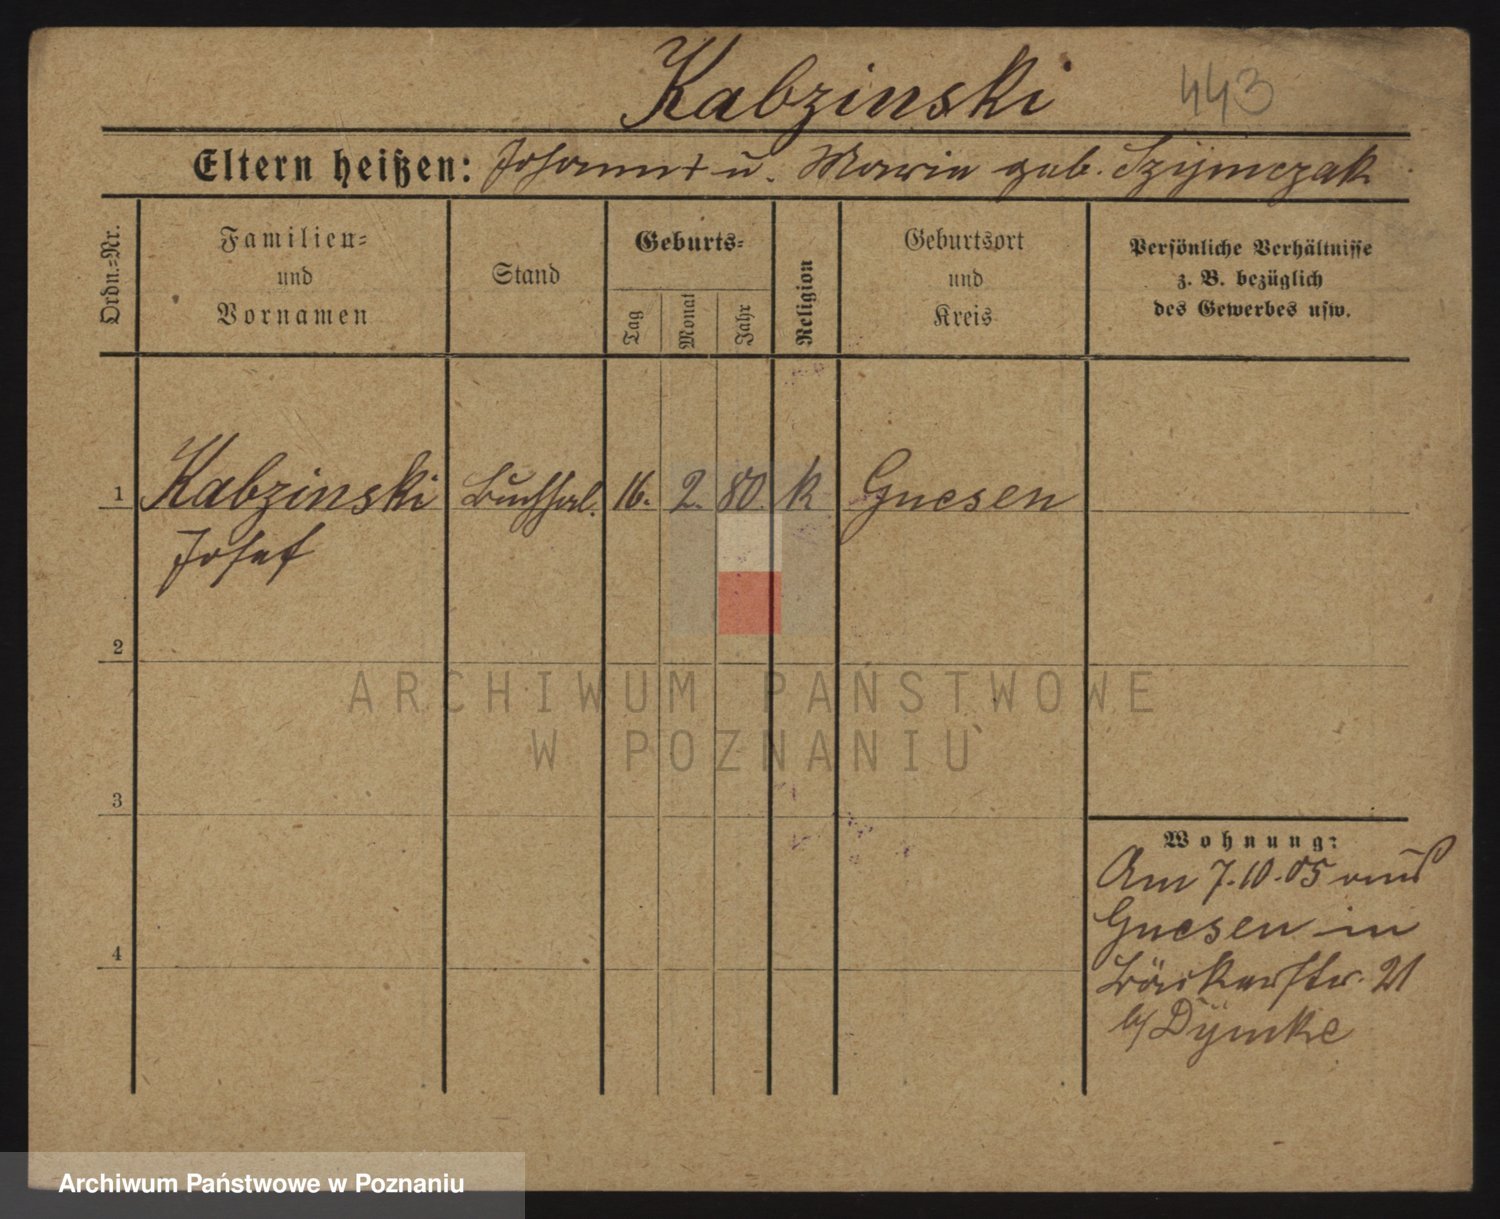 Kabzinski 443
Eltern heißen: Johann + u. Maria geb. Szymczak
Ordn.-Nr.
Familien-
und
Vornamen
Stand
Geburts-
Tag
Monat
Jahr
Religion
Geburtsort
und
Kreis
Persönliche Verhältnisse
z. B. bezüglich
des Gewerbes usw.
1 Kabzinski Buchhal. 16. 2. 80. k Gnesen
Josef
2
ARCHIWUM PAŃSTWOWE
W POZNANIU
3
Wohnung:
Am 7.10.05 aus
Gnesen in
Bäckerstr. 21
b/ Dymke
4
Archiwum Państwowe w Poznaniu